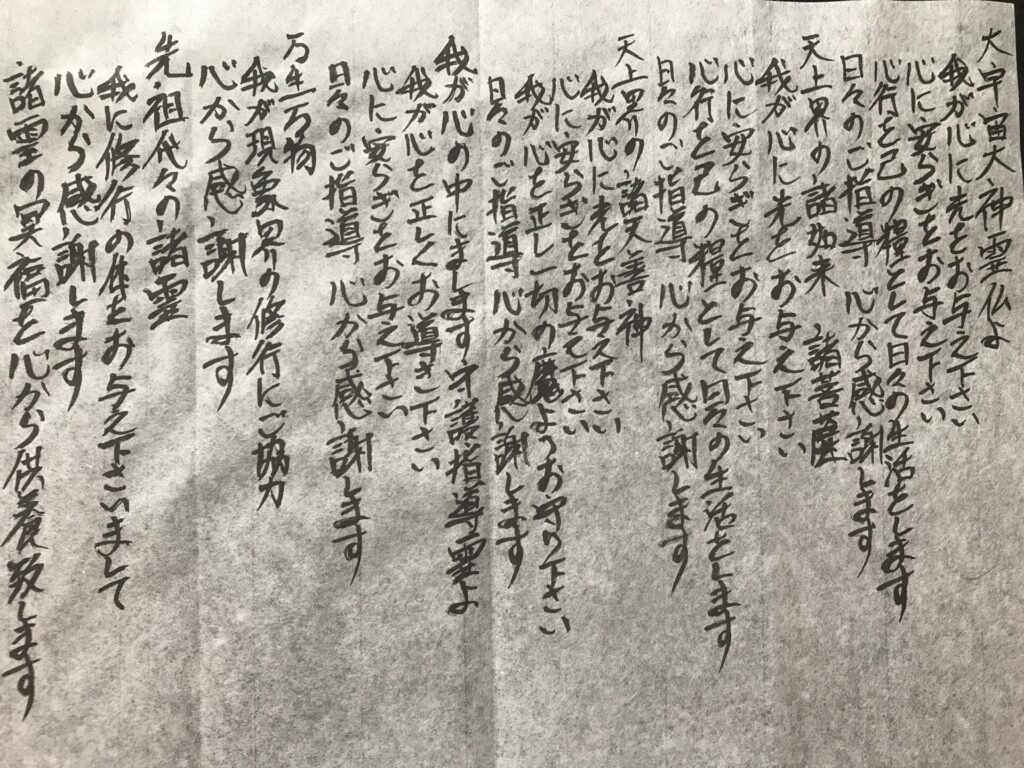 大宇宙大神霊仏よ
我が心に光をお与え下さい
心に安らぎをお与え下さい
心行を己の糧として日々の生活をします
日々のご指導 心から感謝します
天上界の諸如来 諸菩薩
我が心に光をお与え下さい
心に安らぎをお与え下さい
心行を己の糧として日々の生活をします
日々のご指導 心から感謝します
天上界の諸天善神
我が心に光をお与え下さい
心に安らぎをお与え下さい
我が心を正し一切の魔よりお守り下さい
日々のご指導 心から感謝します
我が心の中にまします守護指導霊よ
我が心を正しくお導き下さい
心に安らぎをお与え下さい
日々のご指導 心から感謝します
万生万物
我が現象界の修行にご協力
心から感謝します
先祖代々の諸霊
我に修行の体をお与え下さいまして
心から感謝します
諸霊の冥福を心から供養致します